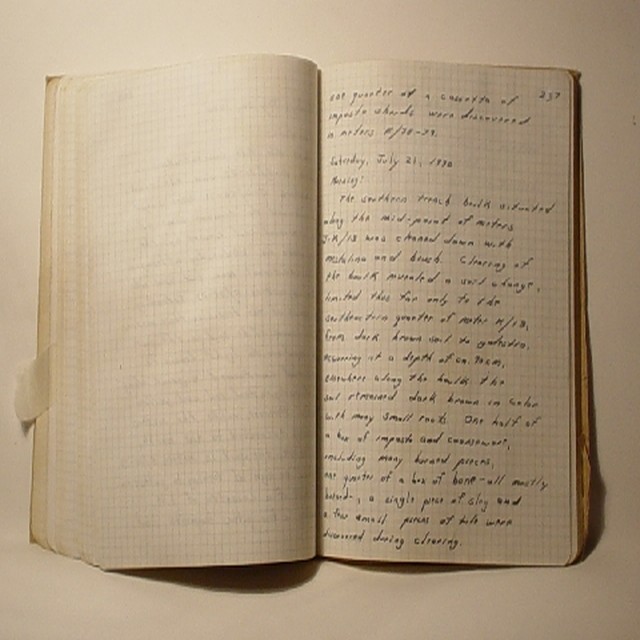 257
one quarter of a cassetta of
imposto sherds were discovered
in meters K/28-29.
Saturday, July 21, 1990
Morning:
The southern trench baulk situated
along the mid-point of meters
J-K/18 was cleaned down with
mataline and brush. Clearing of
the baulk revealed a soil change,
limited thus far only to the
southeastern quarter of meter K/18,
from dark brown soil to galestro,
occurring at a depth of ca. 90cm,
elsewhere along the baulk the
soil remained dark brown in color
with many small roots. One half of
a box of imposto and coarseware,
including many burned pieces,
one quarter of a box of bone - all mostly
, a single piece of slag and
a few small pieces of tile were
discovered during clearing.